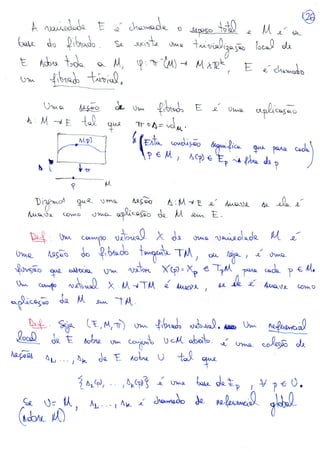 26
A variedade E é chamada o espaço total e M é a
base do fibrado. Se existe uma trivialização local de
E sobre toda a M, φ: π⁻¹(M) → M×ℝᵏ, E é chamado
um fibrado trivial.
Uma seção de um fibrado E é uma aplicação
s: M → E tal que π∘s = id_M.
s(p)
(Esta condição significa que para cada
p ∈ M, s(p) ∈ E_p → fibra de p)
s ↓π
p M
Dizemos que uma seção s: M → E é suave se ela é
suave como uma aplicação de M em E.
Def. Um campo vetorial X de uma variedade M é
uma seção do fibrado tangente TM, ou seja, é uma
que associa um vetor X(p) = X_p ∈ T_pM para cada p ∈ M.
Um campo vetorial X: M → TM é suave, se ele é suave como
aplicação de M em TM.
Def. Seja (E, M, π) um fibrado vetorial. Um referencial
local de E sobre um conjunto U⊂M aberto é uma coleção de
seções s₁, ..., s_k de E sobre U tal que
{s₁(p), ..., s_k(p)} é uma base de E_p, ∀ p ∈ U.
Se U = M, s₁, ..., s_k é chamado de referencial global
(sobre M)